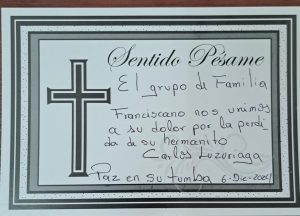 Sentido Pésame
El grupo de Familia
Franciscano nos unimos
a su dolor por la perdi
da de su hermanito
Carlos Luzuriaga
Paz en su tumba 6-Dic-2024